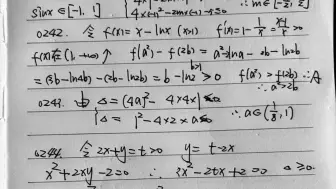 sinx∈[-1, 1]
4×(-4)²-2m×(-4)-5≤0 ∴m∈[-5/2, 5/2]
0242. 令 f(x)=x-lnx (x>1) f'(x)=1-1/x=(x-1)/x>0
f(x)在(1,+∞)↑ f(a²)-f(2b)=a²-2lna-2b-ln2b
=(3b-ln4b)-(2b-ln2b)=b-ln2>0 f(a²)>f(2b) ∴A
∴a²>2b
0243. 由 Δ=(4a)²-4×4×1≤0
Δ=1²-4×2×a≤0 ∴a∈(1/8,1)
0244. 令2x+y=t>0 y=t-2x
x²+2xy-2=0 ∴3x²-2tx+2=0 Δ≥0